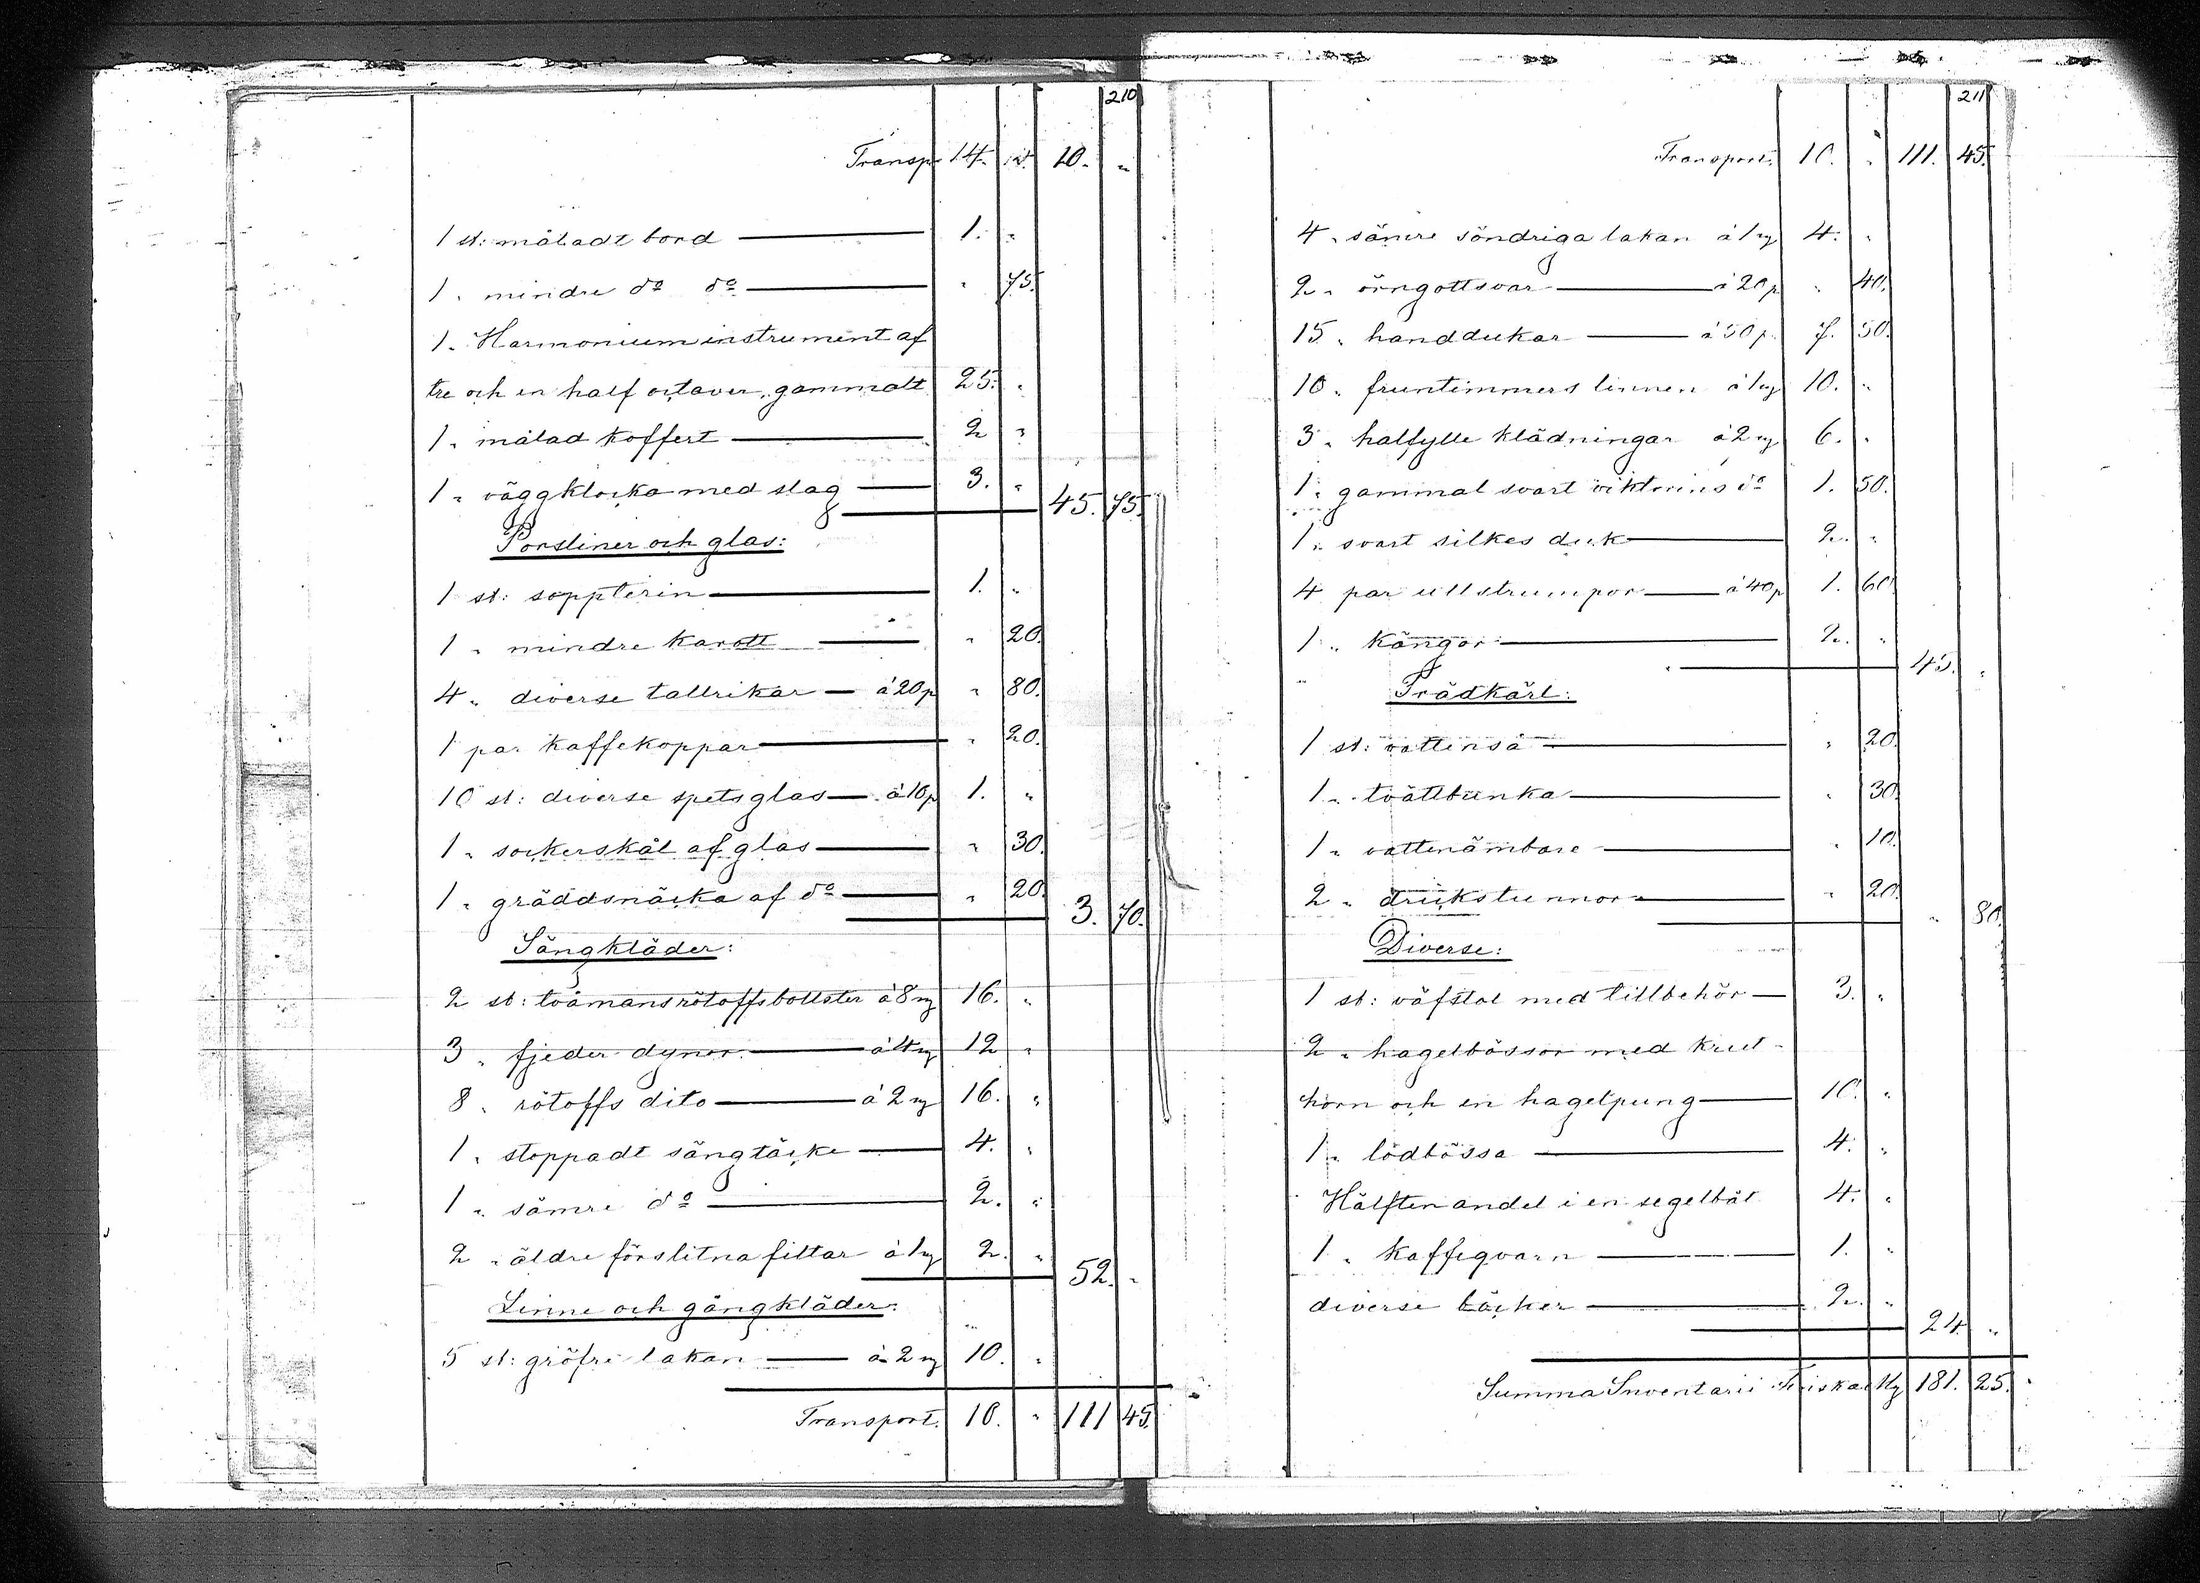 210
Transp. 14. " 10. "
1 st: måladt bord 1. "
1 " mindre do do " 75.
1 " Harmonium instrument af
tre och en half octaver, gammalt 25. "
1 " målad koffert 2 "
1 " väggklocka med slag 3. " 45. 75.
Porsliner och glas:
1 st: soppterin 1. "
1 " mindre karott " 20.
4 " diverse tallrikar à 20 p " 80.
1 par kaffekoppar " 20.
10 st: diverse spetsglas à 10 p 1. "
1 " sockerskål af glas " 30.
1 " gräddsnäcka af do " 20. 3. 70.
Sängkläder:
2 st: tvåmansrötoffsbollster à 8 mk 16. "
3 " fjeder dynor à 4 mk 12 "
8 " rötoffs dito à 2 mk 16. "
1 " stoppadt sängtäcke 4. "
1 " sämre do 2. "
2 " äldre förslitna filtar à 1 mk 2. " 52. "
Linne och gångkläder:
5 st: gröfre lakan à 2 mk 10. "
Transport. 10. " 111 45.
211
Transport. 10. " 111. 45.
4 " sämre söndriga lakan à 1 mk 4. "
2 " örngottsvar à 20 p " 40.
15 " handdukar à 50 p 7. 50.
10 " fruntimmers linnen à 1 mk 10. "
3 " halfylle klädningar à 2 mk 6. "
1 " gammal svart viktorins do 1. 50.
1 " svart silkes duk 2. "
4 par ullstrumpor à 40 p 1. 60.
1 " kängor 2. " 45. "
Trädkärl:
1 st: vattenså " 20.
1 " tvättbunka " 30.
1 " vattenämbare " 10.
2 " drickstunnor " 20. " 80.
Diverse:
1 st: väfstol med tillbehör 3. "
2 " hagelbössor med krut-
horn och en hagelpung 10. "
1 " lödbössa 4. "
Hälften andel i en segelbåt 4. "
1 " kaffeqvarn 1. "
diverse böcker 2. " 24. "
Summa Inventarii Finska mk 181. 25.